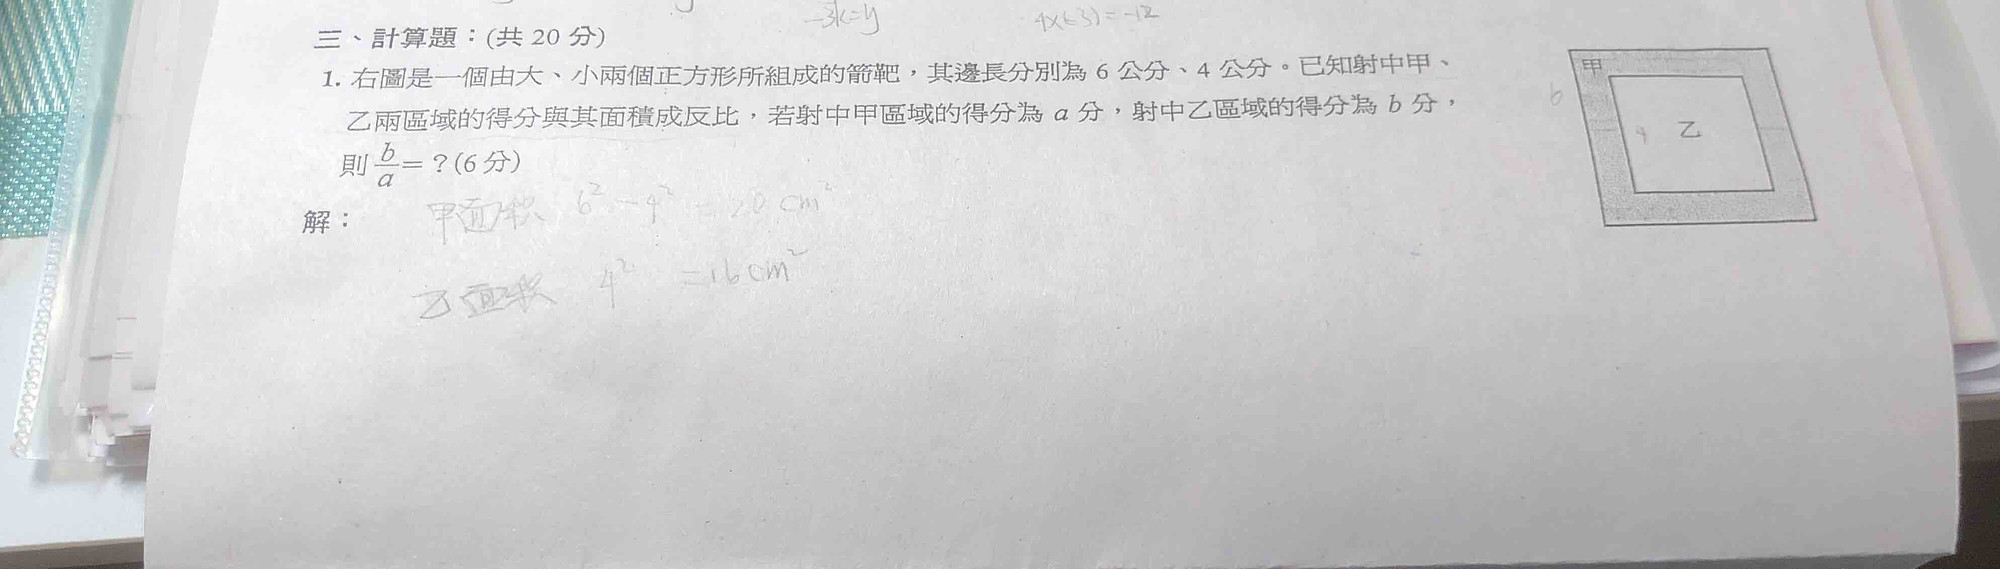 -3k=y
4×(-3)=-12
三、計算題：(共 20 分)
1. 右圖是一個由大、小兩個正方形所組成的箭靶，其邊長分別為 6 公分、4 公分。已知射中甲、
乙兩區域的得分與其面積成反比，若射中甲區域的得分為 a 分，射中乙區域的得分為 b 分，
則 b/a = ？(6 分)
甲
6
4
乙
解：
甲面积 6²-4² = 20 cm²
乙面积 4² = 16 cm²